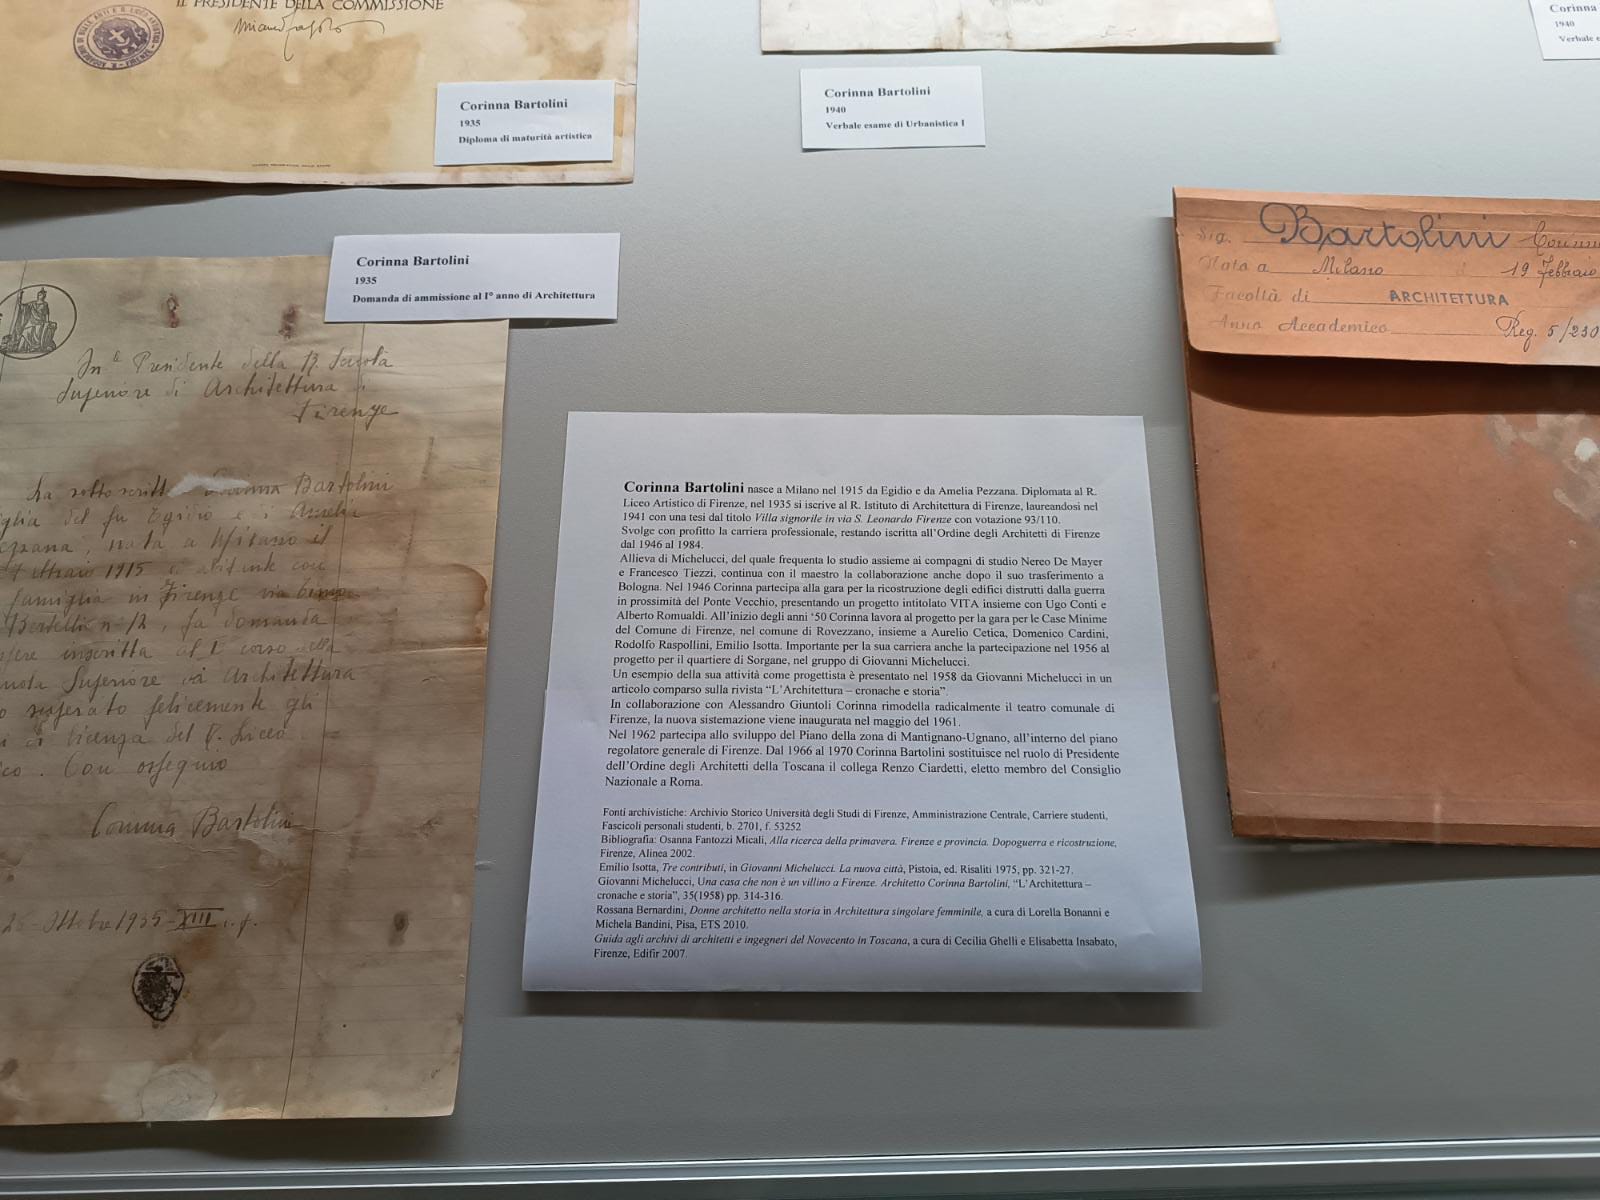 IL PRESIDENTE DELLA COMMISSIONE
Corinna Bartolini
1935
Diploma di maturità artistica
Corinna Bartolini
1940
Verbale esame di Urbanistica I
Corinna
1940
Verbale e
Corinna Bartolini
1935
Domanda di ammissione al I° anno di Architettura
Presidente della R. Scuola
Superiore di Architettura di
Firenze
La sottoscritt Corinna Bartolini
iglia del fu Egidio e di Amelia
ezzana, nata a Milano il
1915 e abitante con
famiglia in Firenze via
Bertelli n° 12, fa domanda
ssere inscritta al I° corso della
uola Superiore di Architettura
o superato felicemente gli
i di licenza del R. Liceo
co. Con ossequio
Corinna Bartolini
Ottobre 1935 - XIII
Sig. Bartolini Corinna
Nata a Milano 19 Febbraio
Facoltà di ARCHITETTURA
Anno Accademico Reg. 5/230
Corinna Bartolini nasce a Milano nel 1915 da Egidio e da Amelia Pezzana. Diplomata al R.
Liceo Artistico di Firenze, nel 1935 si iscrive al R. Istituto di Architettura di Firenze, laureandosi nel
1941 con una tesi dal titolo Villa signorile in via S. Leonardo Firenze con votazione 93/110.
Svolge con profitto la carriera professionale, restando iscritta all'Ordine degli Architetti di Firenze
dal 1946 al 1984.
Allieva di Michelucci, del quale frequenta lo studio assieme ai compagni di studio Nereo De Mayer
e Francesco Tiezzi, continua con il maestro la collaborazione anche dopo il suo trasferimento a
Bologna. Nel 1946 Corinna partecipa alla gara per la ricostruzione degli edifici distrutti dalla guerra
in prossimità del Ponte Vecchio, presentando un progetto intitolato VITA insieme con Ugo Conti e
Alberto Romualdi. All'inizio degli anni '50 Corinna lavora al progetto per la gara per le Case Minime
del Comune di Firenze, nel comune di Rovezzano, insieme a Aurelio Cetica, Domenico Cardini,
Rodolfo Raspollini, Emilio Isotta. Importante per la sua carriera anche la partecipazione nel 1956 al
progetto per il quartiere di Sorgane, nel gruppo di Giovanni Michelucci.
Un esempio della sua attività come progettista è presentato nel 1958 da Giovanni Michelucci in un
articolo comparso sulla rivista "L'Architettura – cronache e storia".
In collaborazione con Alessandro Giuntoli Corinna rimodella radicalmente il teatro comunale di
Firenze, la nuova sistemazione viene inaugurata nel maggio del 1961.
Nel 1962 partecipa allo sviluppo del Piano della zona di Mantignano-Ugnano, all'interno del piano
regolatore generale di Firenze. Dal 1966 al 1970 Corinna Bartolini sostituisce nel ruolo di Presidente
dell'Ordine degli Architetti della Toscana il collega Renzo Ciardetti, eletto membro del Consiglio
Nazionale a Roma.
Fonti archivistiche: Archivio Storico Università degli Studi di Firenze, Amministrazione Centrale, Carriere studenti,
Fascicoli personali studenti, b. 2701, f. 53252
Bibliografia: Osanna Fantozzi Micali, Alla ricerca della primavera. Firenze e provincia. Dopoguerra e ricostruzione,
Firenze, Alinea 2002.
Emilio Isotta, Tre contributi, in Giovanni Michelucci. La nuova città, Pistoia, ed. Risaliti 1975, pp. 321-27.
Giovanni Michelucci, Una casa che non è un villino a Firenze. Architetto Corinna Bartolini, "L'Architettura –
cronache e storia", 35(1958) pp. 314-316.
Rossana Bernardini, Donne architetto nella storia in Architettura singolare femminile, a cura di Lorella Bonanni e
Michela Bandini, Pisa, ETS 2010.
Guida agli archivi di architetti e ingegneri del Novecento in Toscana, a cura di Cecilia Ghelli e Elisabetta Insabato,
Firenze, Edifir 2007.